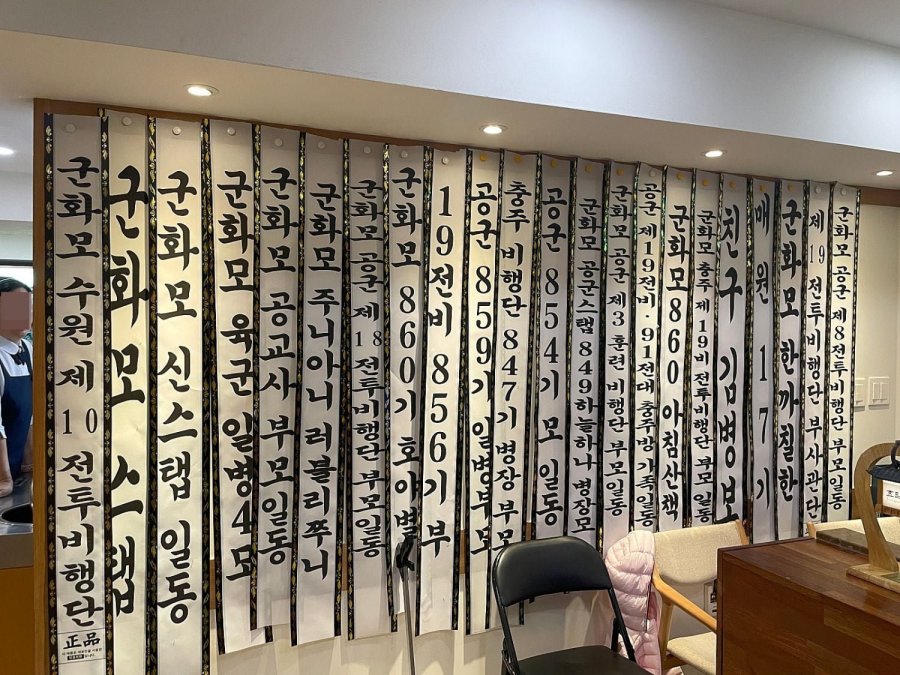 군화모 수원 제 10 전투비행단
正品
군화모 스탭
군화모 신스탭 일동
군화모 육군 일병4모
군화모 공교사 부모일동
군화모 주니아니 러블리쭈니
군화모 공군 제 18 전투비행단 부모일동
군화모 860기 호야별
19전비 856기 부
공군 859기 일병부모
충주 비행단 847기 병장 부모
공군 854기 모 일동
군화모 공군스탭 849하늘하나 병장모
군화모 공군 제3 훈련 비행단 부모일동
공군 제19전비·91전대 충주방 가족일동
군화모860 아침산책
군화모 충주 제 19비 전투비행단 부모 일동
친구 김병보
매원 17기
군화모 한까칠한
제 19 전투비행단 부사관단
군화모 공군 제8전투비행단 부모일동